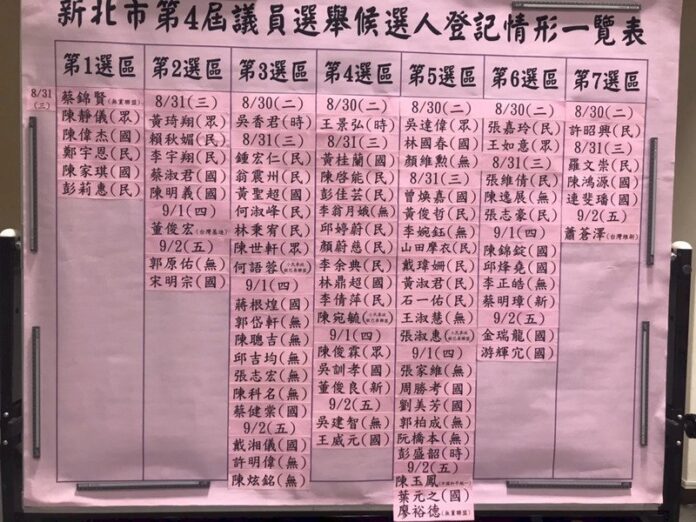 新北市第4屆議員選舉候選人登記情形一覽表
第1選區
8/31(三)
蔡錦賢(無黨聯盟)
陳靜儀(眾)
陳偉杰(國)
鄭宇恩(民)
陳家琪(國)
彭莉惠(民)
第2選區
8/31(三)
黃琦翔(眾)
賴秋媚(民)
李宇翔(民)
蔡淑君(國)
陳明義(國)
9/1(四)
董俊宏(台灣基進)
9/2(五)
郭原佑(無)
宋明宗(國)
第3選區
8/30(二)
吳香君(時)
8/31(三)
鍾宏仁(民)
翁震州(民)
黃聖超(國)
何淑峰(民)
林秉宥(民)
陳世軒(眾)
何語蓉
9/1(四)
蔣根煌(國)
郭岱軒(無)
陳聰吉(無)
邱吉均(無)
張志宏(無)
陳科名(無)
蔡健棠(國)
9/2(五)
戴湘儀(國)
許明偉(無)
陳炫銘(無)
第4選區
8/30(二)
王景弘(時)
8/31(三)
黃桂蘭(國)
陳啟能(民)
彭佳芸(民)
李翁月娥(無)
邱婷蔚(民)
顏蔚慈(民)
李余典(民)
林鼎超(國)
李倩萍(民)
陳宛毓
9/1(四)
陳俊霖(眾)
吳訓孝(國)
董俊良(新)
9/2(五)
吳建智(無)
王威元(國)
第5選區
8/30(二)
吳達偉(眾)
林國春(國)
顏維勲(無)
8/31(三)
曾煥嘉(國)
黃俊哲(民)
李婉鈺(無)
山田摩衣(民)
戴瑋姍(民)
黃淑君(民)
石一佑(民)
王淑慧(無)
張淑惠
9/1(四)
張家維(無)
周勝考(國)
劉美芳(國)
郭柏成(無)
阮橋本(無)
彭盛韶(時)
9/2(五)
陳玉鳳
葉元之(國)
廖裕德(無黨聯盟)
第6選區
8/30(二)
張嘉玲(民)
王如意(眾)
8/31(三)
張維倩(民)
陳逸展(無)
張志豪(民)
9/1(四)
陳錦錠(國)
邱烽堯(國)
李正皓(無)
蔡明璋(新)
9/2(五)
金瑞龍(國)
游輝宂(國)
第7選區
8/30(二)
許昭興(民)
8/31(三)
羅文崇(民)
陳鴻源(國)
連斐璠(國)
9/2(五)
蕭蒼澤(台灣維新)